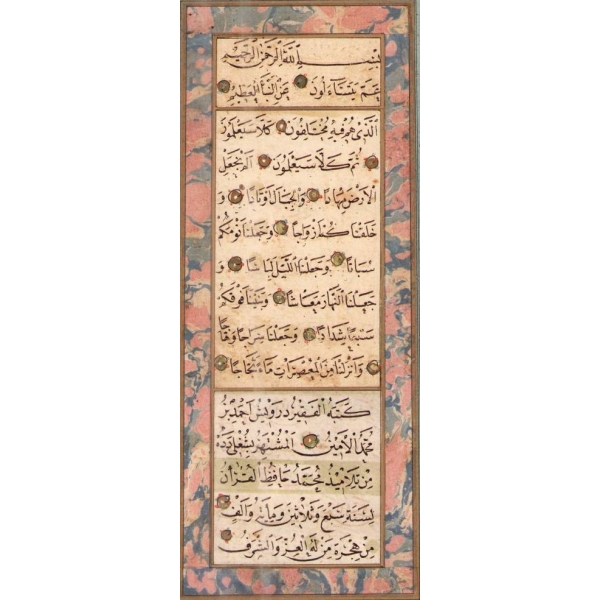 بسم الله الرحمن الرحيم
عم يتساءلون عن النبأ العظيم
الذي هم فيه مختلفون كلا سيعلمون
ثم كلا سيعلمون ألم نجعل
الأرض مهادا والجبال أوتادا و
خلقناكم أزواجا وجعلنا نومكم
سباتا وجعلنا الليل لباسا و
جعلنا النهار معاشا وبنينا فوقكم
سبعا شدادا وجعلنا سراجا وهاجا
وأنزلنا من المعصرات ماء ثجاجا
كتبه الفقير درويش احمد بن
محمد الأمين المشتهر
من تلاميذ محمد حافظ القرآن
لسنة سبع وثلاثين ومائة وألف
من هجرة من له العز والشرف